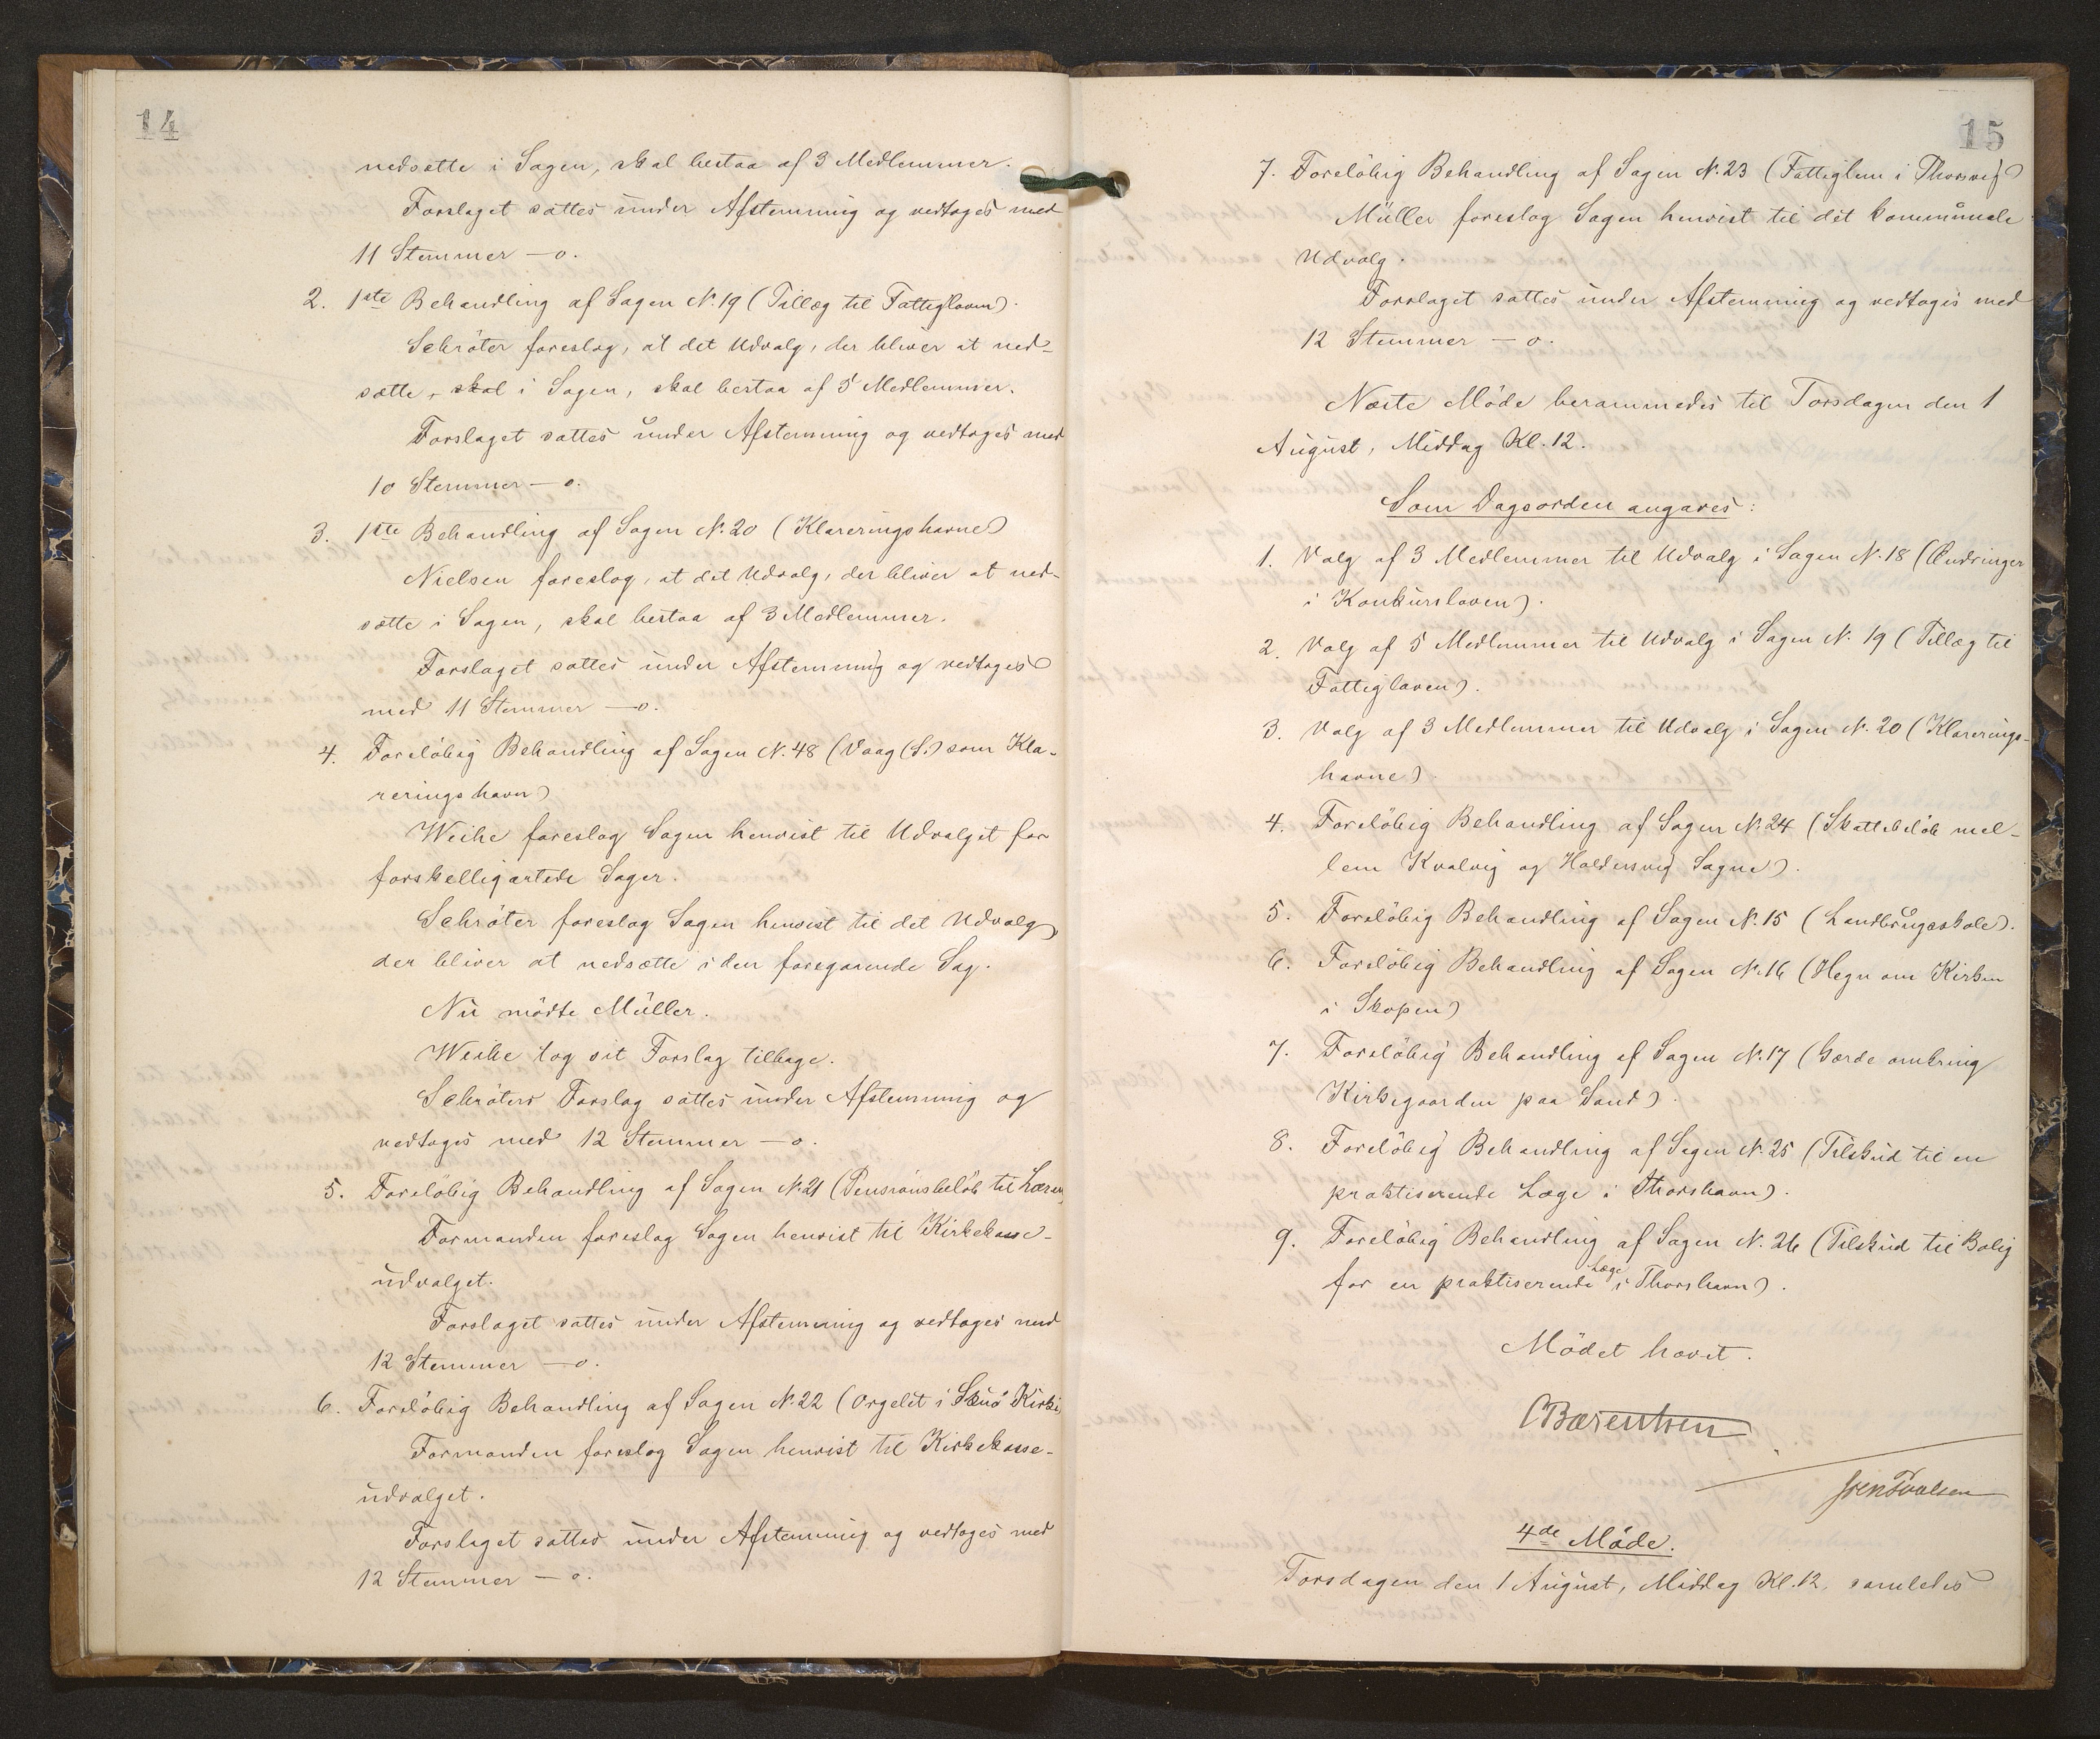 14
nedsætte i Sagen, skal bestaa af 3 Medlemmer.
Forslaget sattes under Afstemning og vedtoges med
11 Stemmer – o.
2. 1ste Behandling af Sagen N. 19 (Tillæg til Fattigloven).
Schröter foreslog, at det Udvalg, der bliver at ned-
sætte, skal i Sagen, skal bestaa af 5 Medlemmer.
Forslaget sattes under Afstemning og vedtoges med
10 Stemmer – o.
3. 1ste Behandling af Sagen N. 20 (Klareringshavne)
Nielsen foreslog, at det Udvalg, der bliver at ned-
sætte i Sagen, skal bestaa af 3 Medlemmer.
Forslaget sattes under Afstemning og vedtoges
med 11 Stemmer – o.
4. Foreløbig Behandling af Sagen N. 48 (Vaag (S.) som Kla-
reringshavn)
Weihe foreslog Sagen henvist til Udvalget for
forskelligartede Sager.
Schröter foreslog Sagen henvist til det Udvalg,
der bliver at nedsætte i den foregaaende Sag.
Nu mødte Müller.
Weihe tog sit Forslag tilbage.
Schröters Forslag sattes under Afstemning og
vedtoges med 12 Stemmer – o.
5. Foreløbig Behandling af Sagen N. 21 (Pensionsbeløb til Lærer
Formanden foreslog Sagen henvist til Kirkekasse-
udvalget.
Forslaget sattes under Afstemning og vedtoges med
12 Stemmer – o.
6. Foreløbig Behandling af Sagen N. 22 (Orgelet i Skuø Kirke
Formanden foreslog Sagen henvist til Kirkekasse-
udvalget.
Forslaget sattes under Afstemning og vedtoges med
12 Stemmer – o.
15
7. Foreløbig Behandling af Sagen N. 23 (Fattiglem i Thorsvig)
Müller foreslog Sagen henvist til det kommunale
Udvalg.
Forslaget sattes under Afstemning og vedtoges med
12 Stemmer – o.
Næste Møde berammedes til Torsdagen den 1
August, Middag Kl. 12.
Som Dagsorden angaves:
1. Valg af 3 Medlemmer til Udvalg i Sagen N. 18 (Ændringer
i Konkursloven).
2. Valg af 5 Medlemmer til Udvalg i Sagen N. 19 (Tillæg til
Fattigloven).
3. Valg af 3 Medlemmer til Udvalg i Sagen N. 20 (Klarerings-
havne).
4. Foreløbig Behandling af Sagen N. 24 (Skattebeløb mel-
lem Kvalvig og Haldersvig Sogne).
5. Foreløbig Behandling af Sagen N. 15 (Landbrugsskole).
6. Foreløbig Behandling af Sagen N. 16 (Hegn om Kirken
i Skopen)
7. Foreløbig Behandling af Sagen N. 17 (Gærde omkring
Kirkegaarden paa Sand).
8. Foreløbig Behandling af Sagen N. 25 (Tilskud til en
praktiserende Læge i Thorshavn).
9. Foreløbig Behandling af Sagen N. 26 (Tilskud til Bolig
for en praktiserende Læge i Thorshavn).
Mødet hævet.
CBærentsen
4de Møde.
Torsdagen den 1 August, Middag Kl. 12, samledes